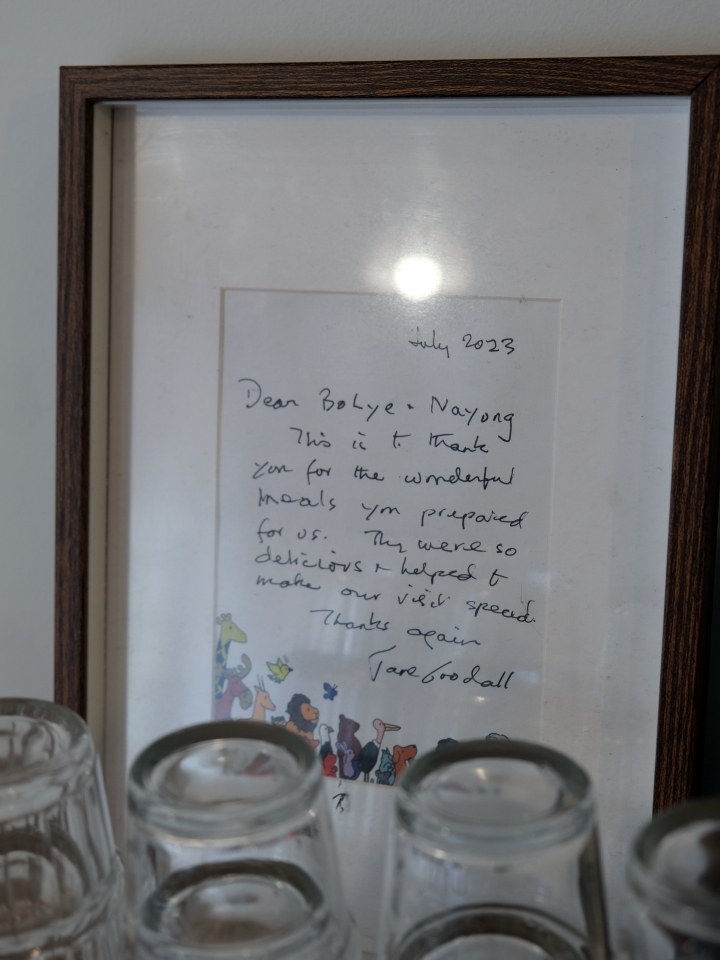 July 2023
Dear Bohye + Nayong
This is to thank
you for the wonderful
meals you prepared
for us. They were so
delicious + helped to
make our visit special.
Thanks again
Jane Goodall